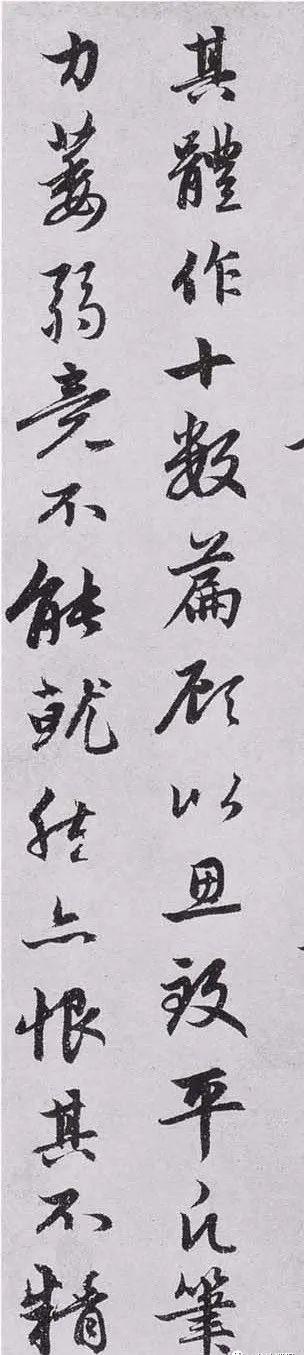 其體作十數篇顧以思致平凡筆
力萎弱竟不能就然亦恨其不精